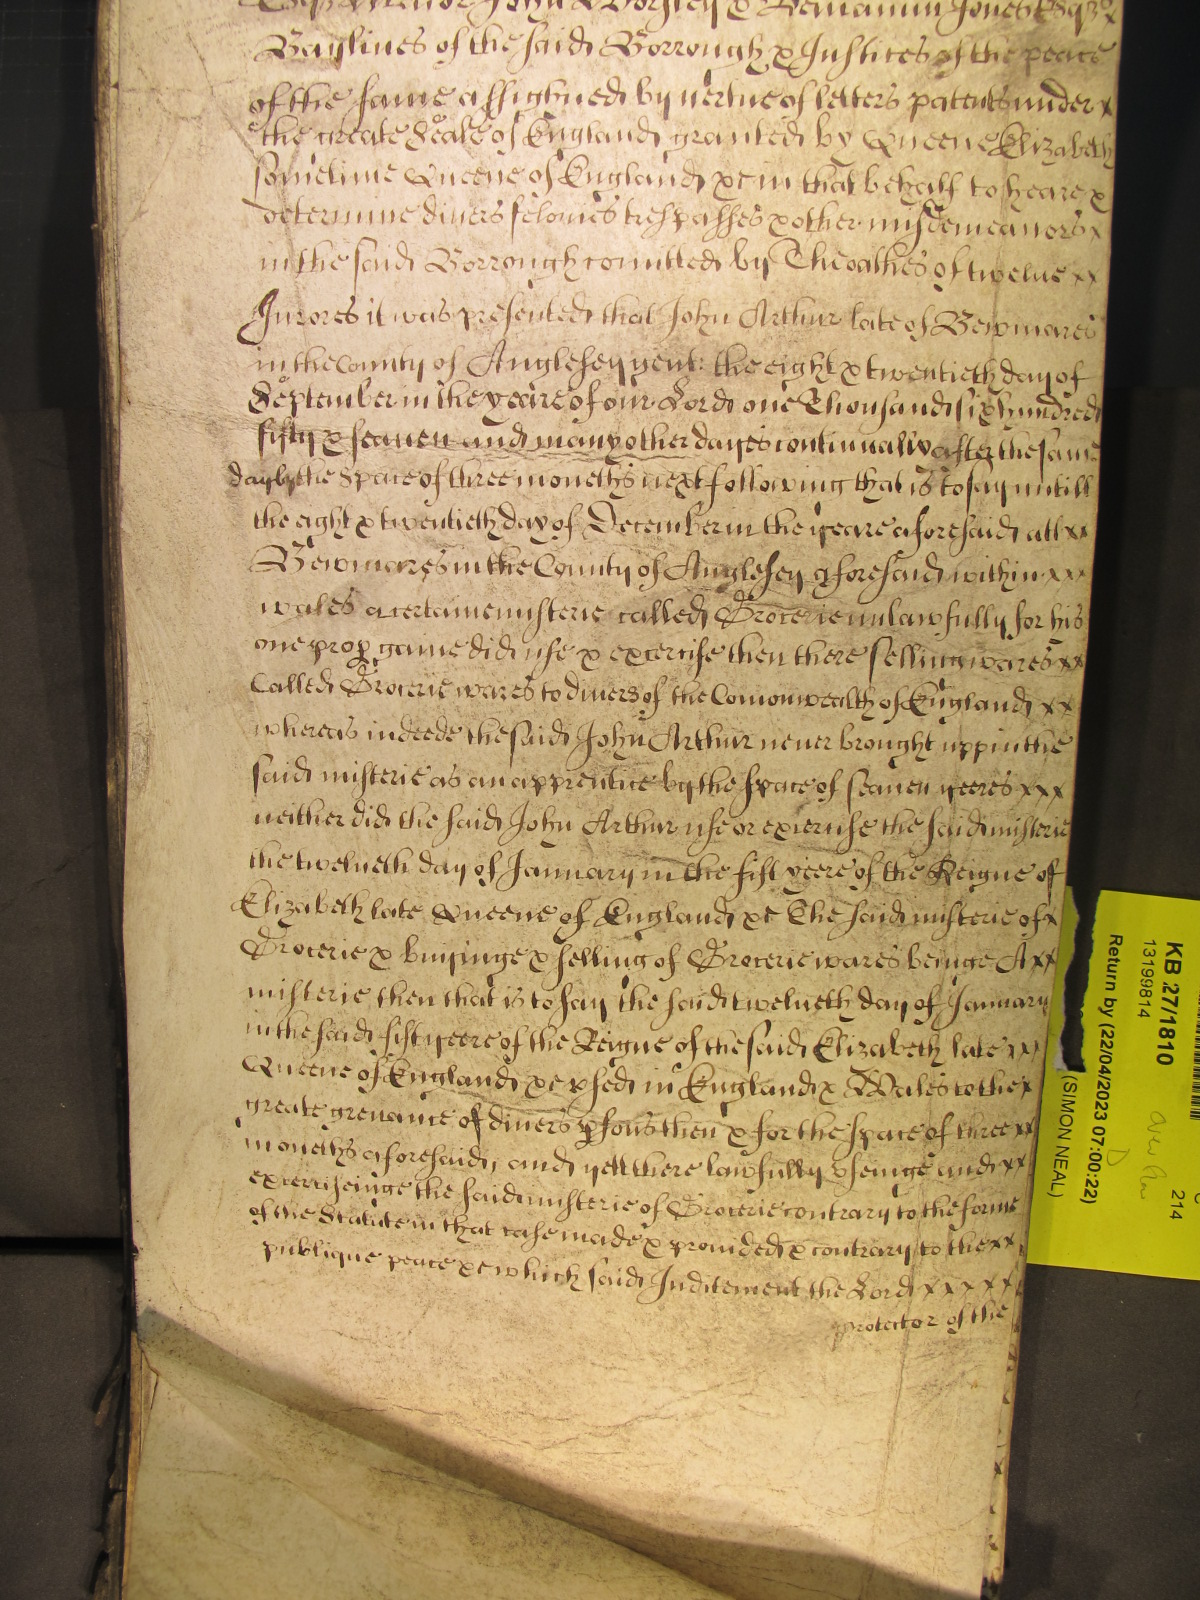 John Worsley & Beniamin Jones Esqrs x
Baylives of the said Borrough & Justices of the peace
of the same assighned by vertue of letters patents under x
the greate Seale of England granted by Queene Elizabeth
sometime Queene of England &c in that behalf to heare &
determine divers felonies trespasses & other misdemeanors x
in the said Borrough comitted by The oathes of twelve x x
Jurores it was presented that John Arthur late of Bewmares
in the County of Anglesey gent: the eight & twentieth day of
September in the yeare of our Lord one Thousand six hundred
fifty & seaven and many other dayes continually after the same
day by the Space of three moneths next following that is to say untill
the eight & twentieth day of December in the yeare aforesaid att x x
Bewmares in the County of Anglesey aforesaid within x x x
wales a certaine misterie called Grocerie unlawfully for his
one prop gaine did use & excercise then there selling wares x x
Called Grocerie wares to divers of the Comonwealth of England x x
whereas indeede the said John Arthur never brought upp in the
said misterie as an apprentice by the space of seaven yeeres x x x
neither did the said John Arthur use or exercise the said misterie
the twelveth day of January in the fist yeere of the Reigne of
Elizabeth late Queene of England &c The said misterie of x
Grocerie & buyinge & selling of Grocerie wares beinge A x x
misterie then that is to say the said twelveth day of January
in the said fist yeere of the Reigne of the said Elizabeth late x x
Queene of England &c vsed in England & Wales to the x
greate grevance of divers psons then & for the space of three x x
moneths aforesaid, and yett there lawfully vseinge and x x
exerciseinge the said misterie of Grocerie contrary to the forme
of the Statute in that case made & provided & contrary to the x x
publique peace &c which said Inditement the Lord x x x x x
protector of the
KB 27/1810
13199814
Return by (22/04/2023 07:00:22)
(SIMON NEAL)
214
D